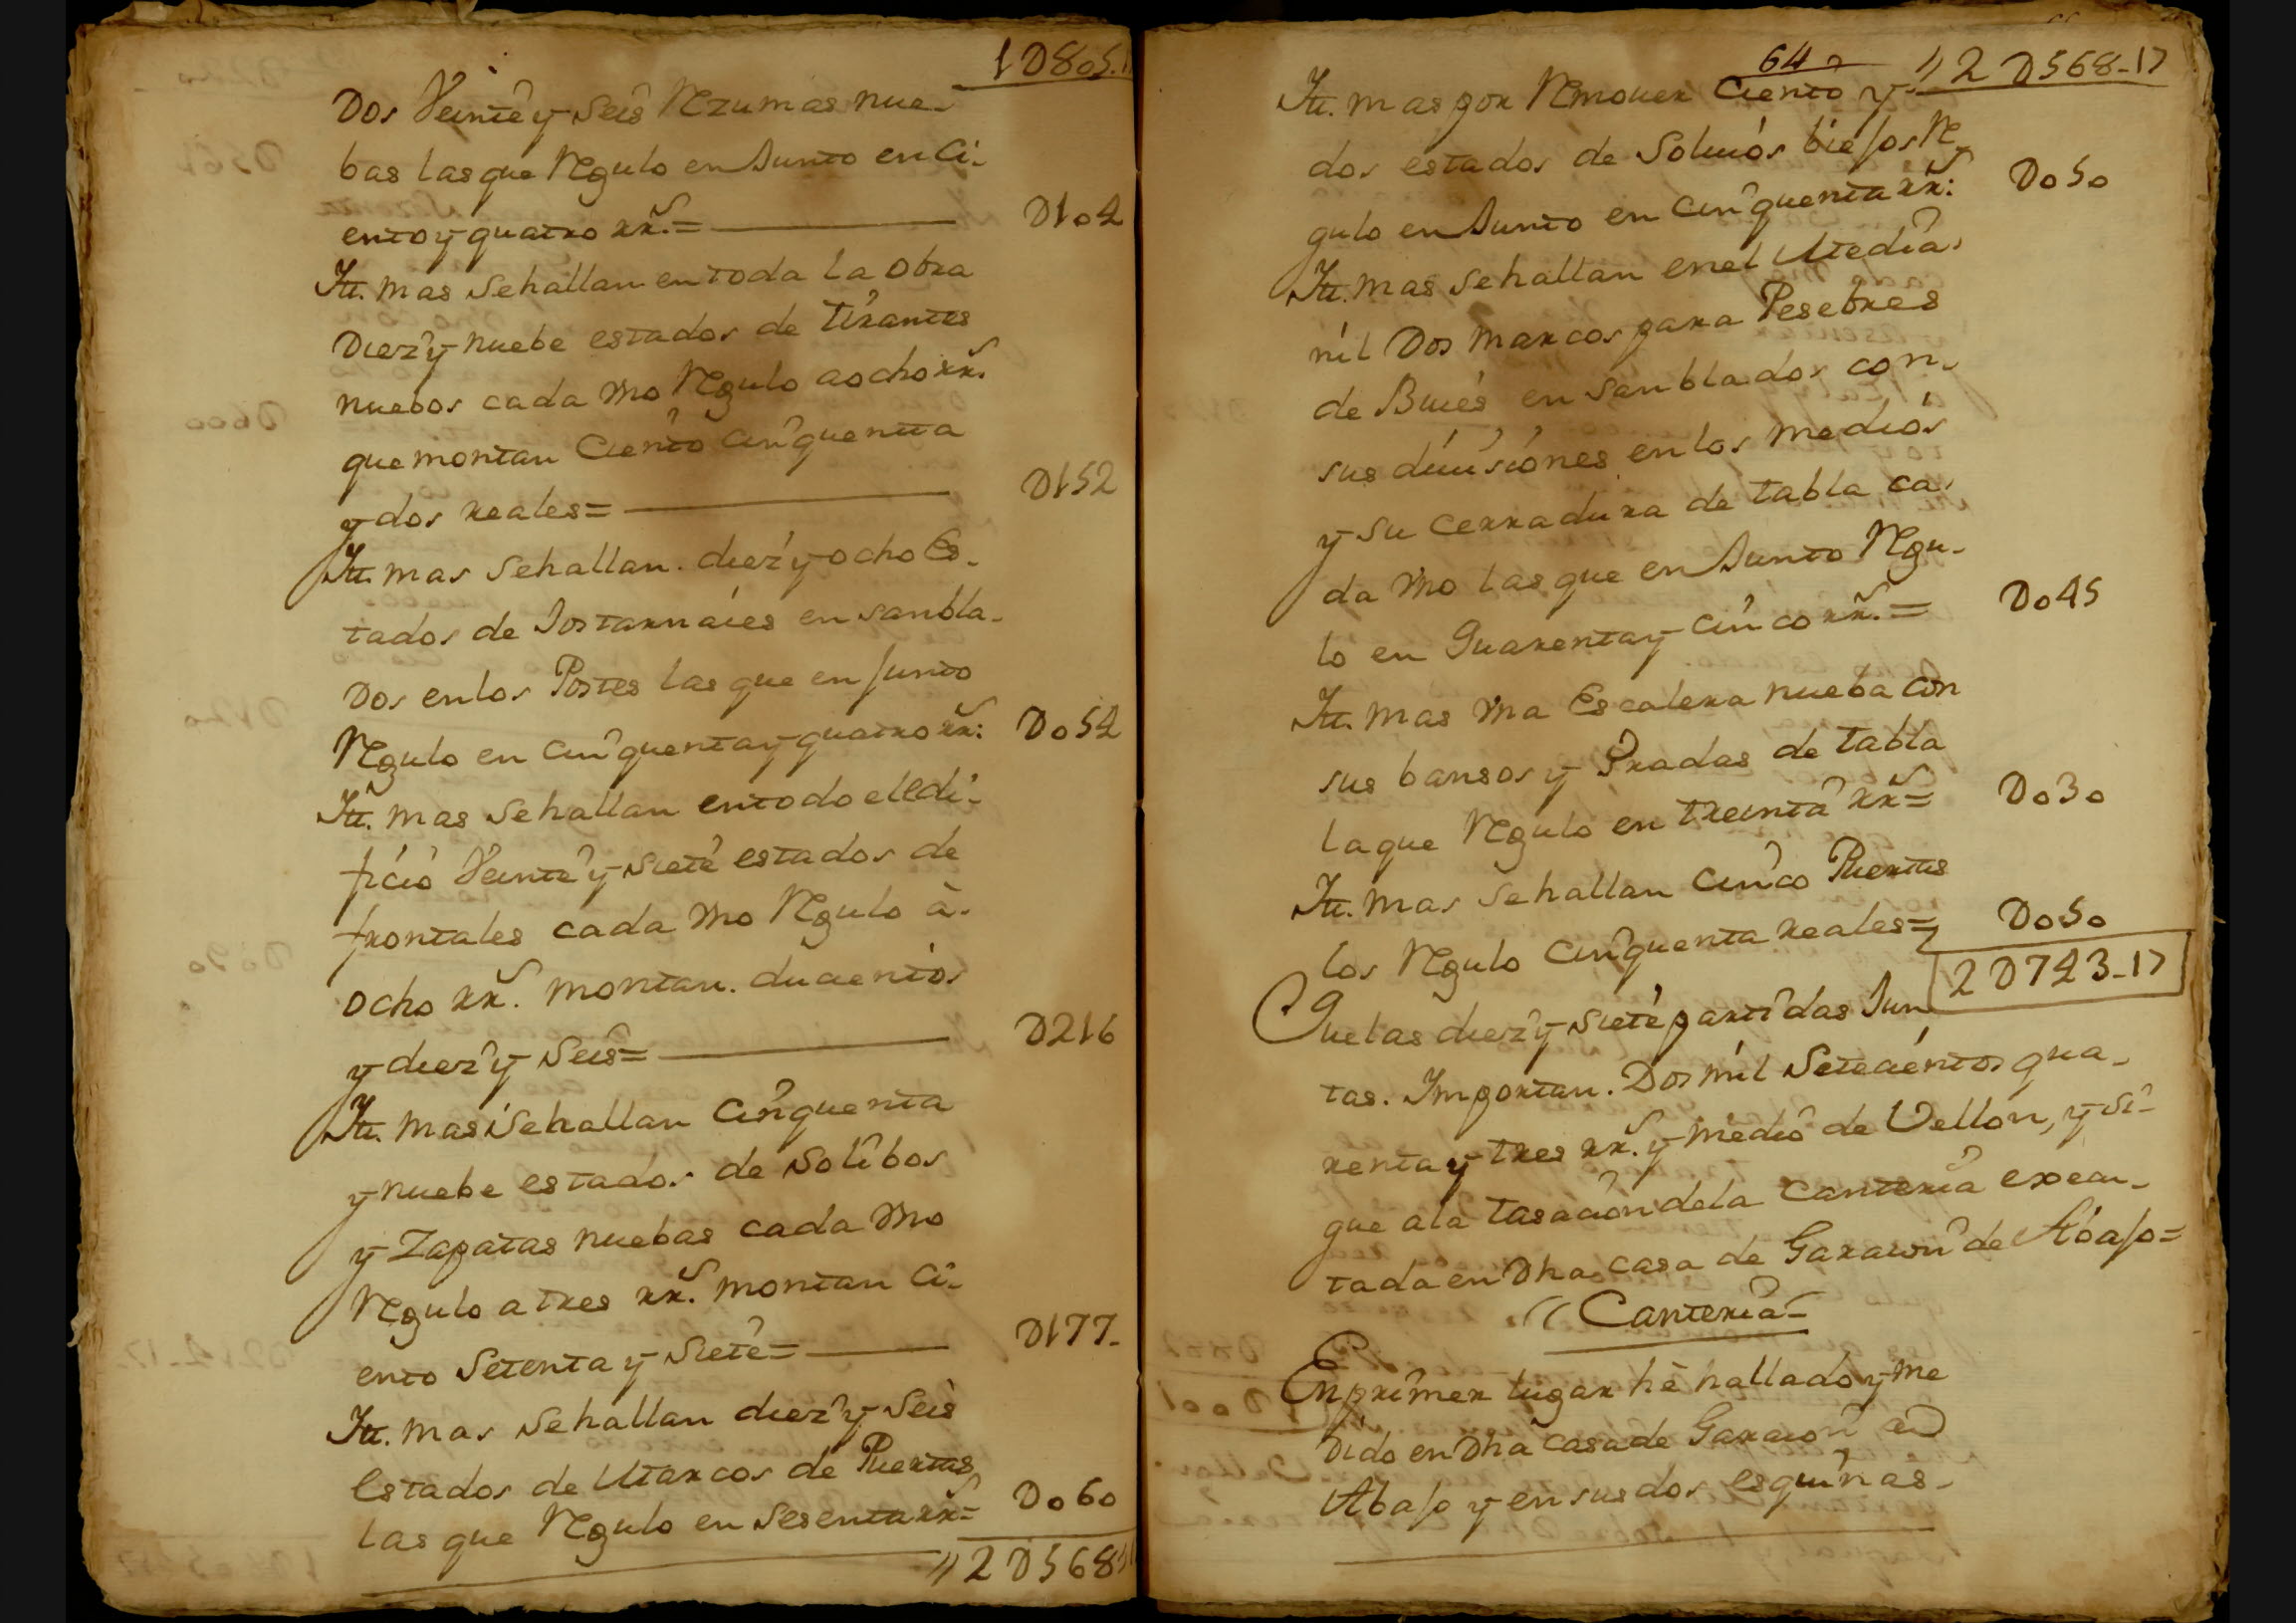 1D805.1
Dos Veinte y Seis Rezumas nue-
bas las que Regulo en Junto en Ci-
ento y quatro rrs.= D104
Itt. mas Sehallan en toda la obra
Diez y nuebe estados de tirantes
nuebos cada vno Regulo a ocho rrs.
que montan Ciento cinquenta
y dos reales= D152
Itt. mas Sehallan. diez y ocho Es-
tados de Jostarnaies en sanbla-
Dos en los Postes las que en Junto
Regulo en cinquenta y quatro rrs: D054
Itt. mas Sehallan en todo el edi-
ficio Veinte y Siete estados de
frontales cada vno Regulo à.
ocho rrs. montan. ducientos
y diez y Seis= D216
Itt. mas Sehallan Cinquenta
y nuebe estados de Solibos
y Zapatas nuebas cada vno
Regulo a tres rrs. montan Ci-
ento Setenta y Siete= D177-
Itt. mas Sehallan diez y Seis
Estados de Marcos de Puertas
las que Regulo en Sesenta rrs= D060
// 2D568
64 // 2D568-17
Itt. mas por Remouer Ciento y
dos estados de Soliuos biejos Re-
gulo en Junto en cinquenta rrs: D050
Itt. mas Sehallan en el Media-
nil Dos marcos para Pesebres
de Buies en sanblados con-
sus diuisiones en los medios
y su cerradura de tabla ca-
da vno las que en Junto Regu-
lo en Quarenta y cinco rrs.= D045
Itt. mas vna Escalera nueba con
sus bansos y Gradas de tabla
la que Regulo en treinta rrs= D030
Itt. mas Sehallan Cinco Puertas
los Regulo cinquenta reales= D050
2D743-17
Que las diez y Siete partidas Jun
tas. Importan. Dos mil Setecientos qua-
renta y tres rrs. y medio de Vellon, y si-
gue a la tasacion de la Canteria execu-
tada en Dha casa de Garaion de Abajo=
// Canteria=
En primer lugar hè hallado y me
dido en Dha casa de Garaion de
Abajo y en sus dos esquinas-